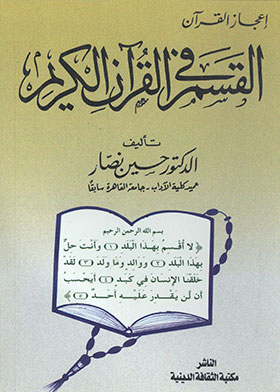 إعجاز القرآن
القسم في القرآن الكريم
تأليف
الدكتور حسين نصار
عميد كلية الآداب - جامعة القاهرة سابقا
بسم الله الرحمن الرحيم
﴿ لا أقسم بهذا البلد (١) وأنت حل
بهذا البلد (٢) ووالد وما ولد (٣) لقد
خلقنا الإنسان في كبد (٤) أيحسب
أن لن يقدر عليه أحد (٥) ﴾
الناشر
مكتبة الثقافة الدينية